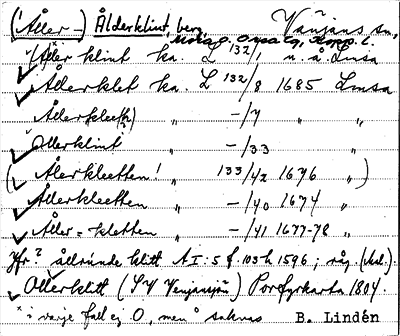 (Åller-) Ålderklint, berg Venjans sn,
Mora o. Orsa tg, Kopp. l.
(Åller klint ka. L 132/1 u.å. Lmsa
Ållerklet ka. L 132/8 1685 Lmsa
Ållerklee(t?) " -/7 " "
Ållerklint " -/33
(Ålerkleetten! " 133/42 1676 ")
Ållerkleetten " -/40 1674 "
Åller=kletten " -/41 1677-78 "
Jfr? ållrunde klitt A I:5 f. 103 h 1596; rå (Mal.).
Ollerklitt (SV Venjansjön) Porfyrkarta 1804.
x i varje fall ej O, men ° saknas B. Lindén